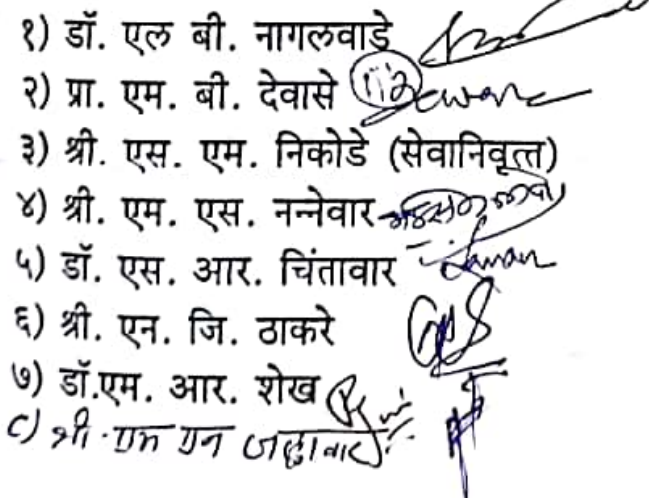 १) डॉ. एल बी. नागलवाडे
२) प्रा. एम. बी. देवासे
३) श्री. एस. एम. निकोडे (सेवानिवृत्त)
४) श्री. एम. एस. नन्नेवार
५) डॉ. एस. आर. चिंतावार
६) श्री. एन. जि. ठाकरे
७) डॉ.एम. आर. शेख
८) श्री. एम एन